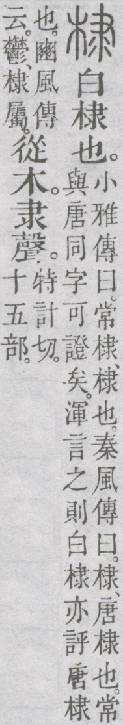 棣 白棣也。小雅傳曰。常棣、棣也。秦風傳曰。棣、唐棣也。常
與唐同字可證矣。渾言之則白棣亦評唐棣
也。豳風傳
云。鬱、棣屬。
從木。隶聲。
特計切。
十五部。